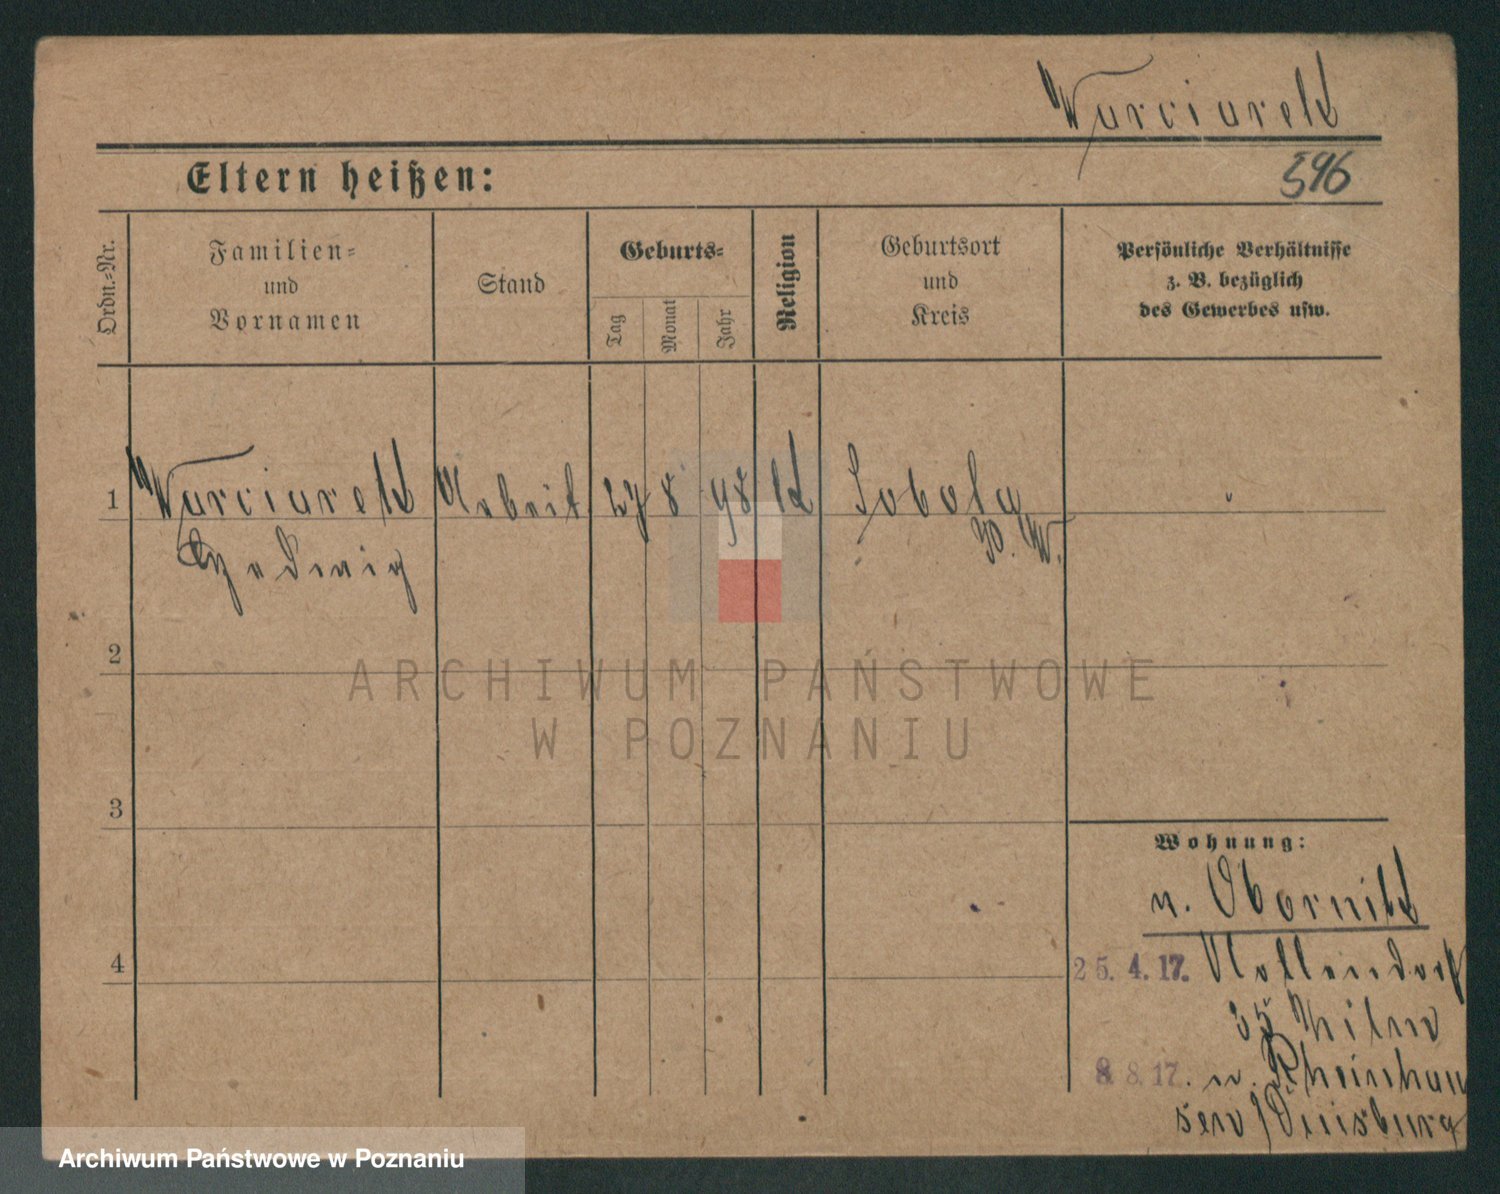 Warciarek
596
Eltern heißen:
Ordn.-Nr.
Familien-
und
Vornamen
Stand
Geburts-
Tag
Monat
Jahr
Religion
Geburtsort
und
Kreis
Persönliche Verhältnisse
z. B. bezüglich
des Gewerbes usw.
1 Warciarek Arbeit 27 8 98 k Sobota
P. W.
Hedwig
2
3
4
Wohnung:
n. Obornik
25. 4. 17. Nollendorf
35 Thilm
8 8. 17. n. Rheinhau
sen/Duisburg
ARCHIWUM PAŃSTWOWE
W POZNANIU
Archiwum Państwowe w Poznaniu